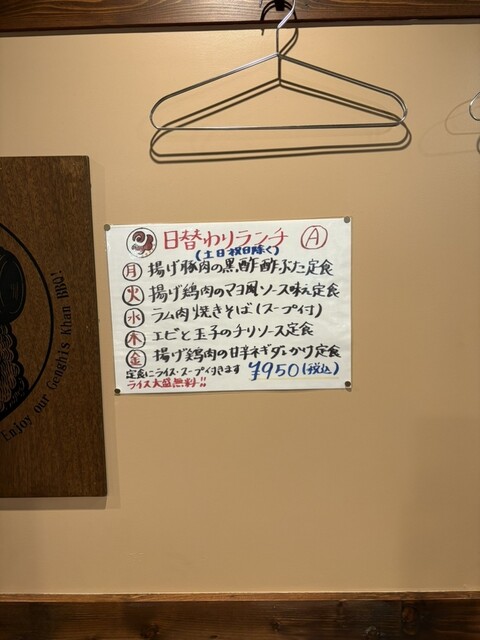 日替わりランチ Ⓐ
(土日祝日除く)
㊊ 揚げ豚肉の黒酢酢ぶた定食
㊋ 揚げ鶏肉のマヨ風ソース味え定食
㊌ ラム肉焼きそば(スープ付)
㊍ エビと玉子のチリソース定食
㊎ 揚げ鶏肉の甘辛ネギダレかけ定食
定食にライス・スープ付きます ¥950(税込)
ライス大盛無料!!
Enjoy our Genghis Khan BBQ!